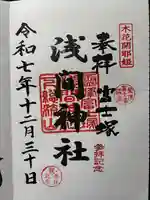 木花開耶姫
奉拝 富士塚
浅間神社
参拝記念
令和七年十二月三十日